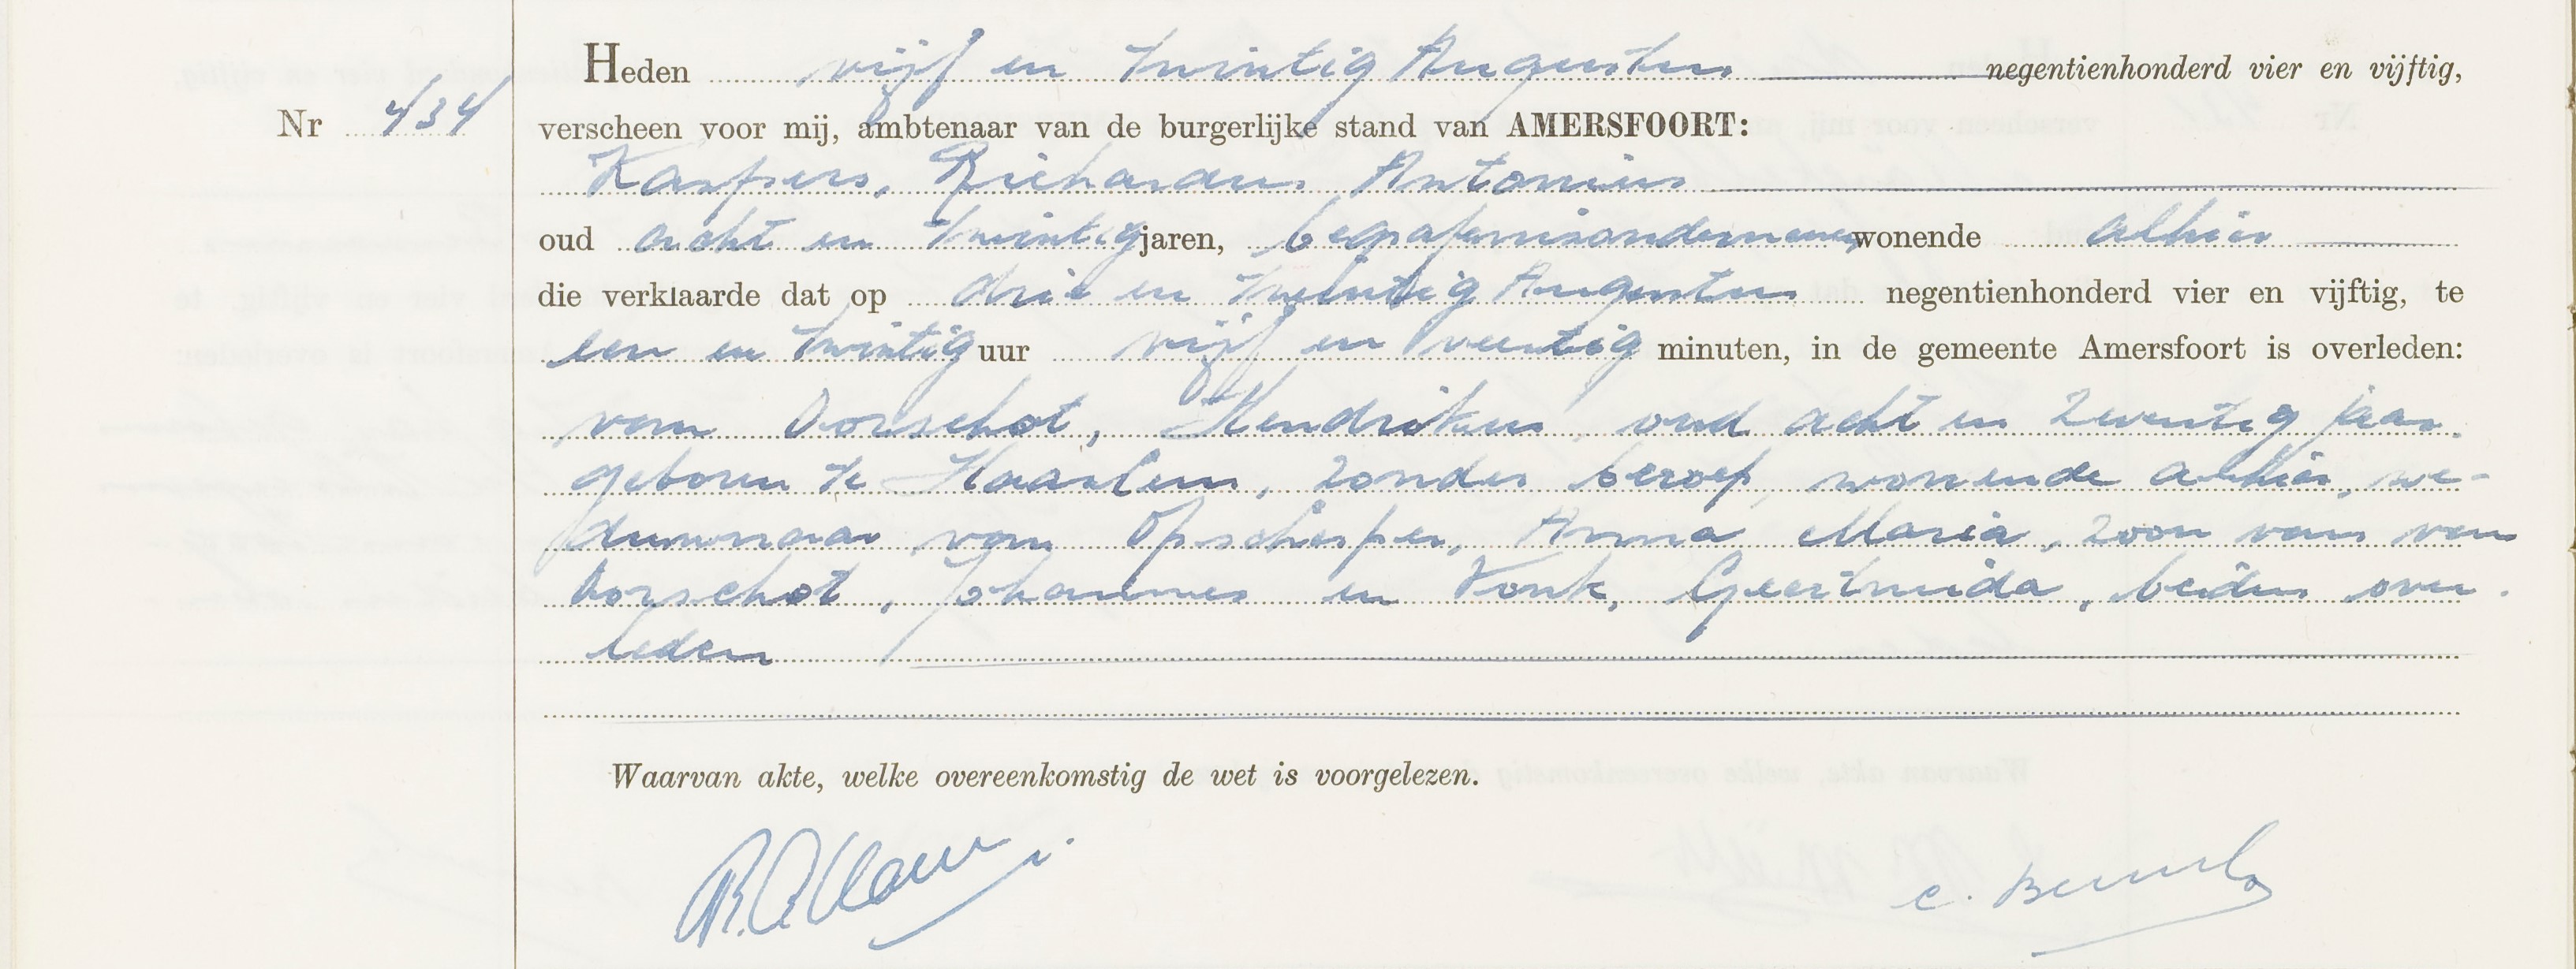 Heden vijf en twintig Augustus negentienhonderd vier en vijftig,
Nr 434
verscheen voor mij, ambtenaar van de burgerlijke stand van AMERSFOORT:
Kaspers, Richardus Antonius
oud acht en twintig jaren, begrafenisondernemer, wonende alhier
die verklaarde dat op drie en twintig Augustus negentienhonderd vier en vijftig, te
een en twintig uur vijf en veertig minuten, in de gemeente Amersfoort is overleden:
van Oorschot, Hendrikus, oud acht en zeventig jaar,
geboren te Haarlem, zonder beroep, wonende alhier, we-
duwnaar van Opscherper, Anna Maria, zoon van van
Oorschot, Johannes en Vonk, Geertruida, beiden over-
leden
Waarvan akte, welke overeenkomstig de wet is voorgelezen.